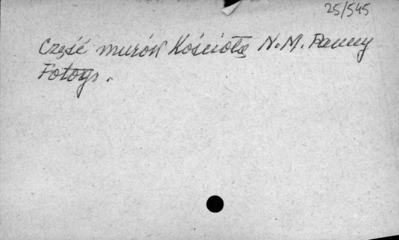 25/545
Część murów Kościoła N.M. Panny
Fotogr.